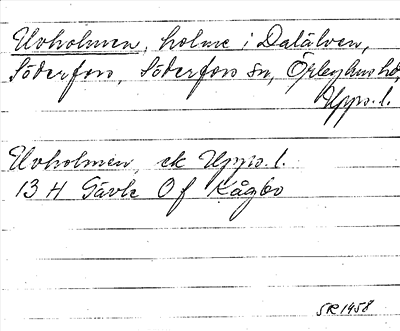 Uvholmen, holme i Dalälven,
Söderfors, Söderfors sn, Örbyhus hd,
Upps. l.
Uvholmen, ek Upps. l.
13 H Gävle 0 f Kågbo
SR 1458